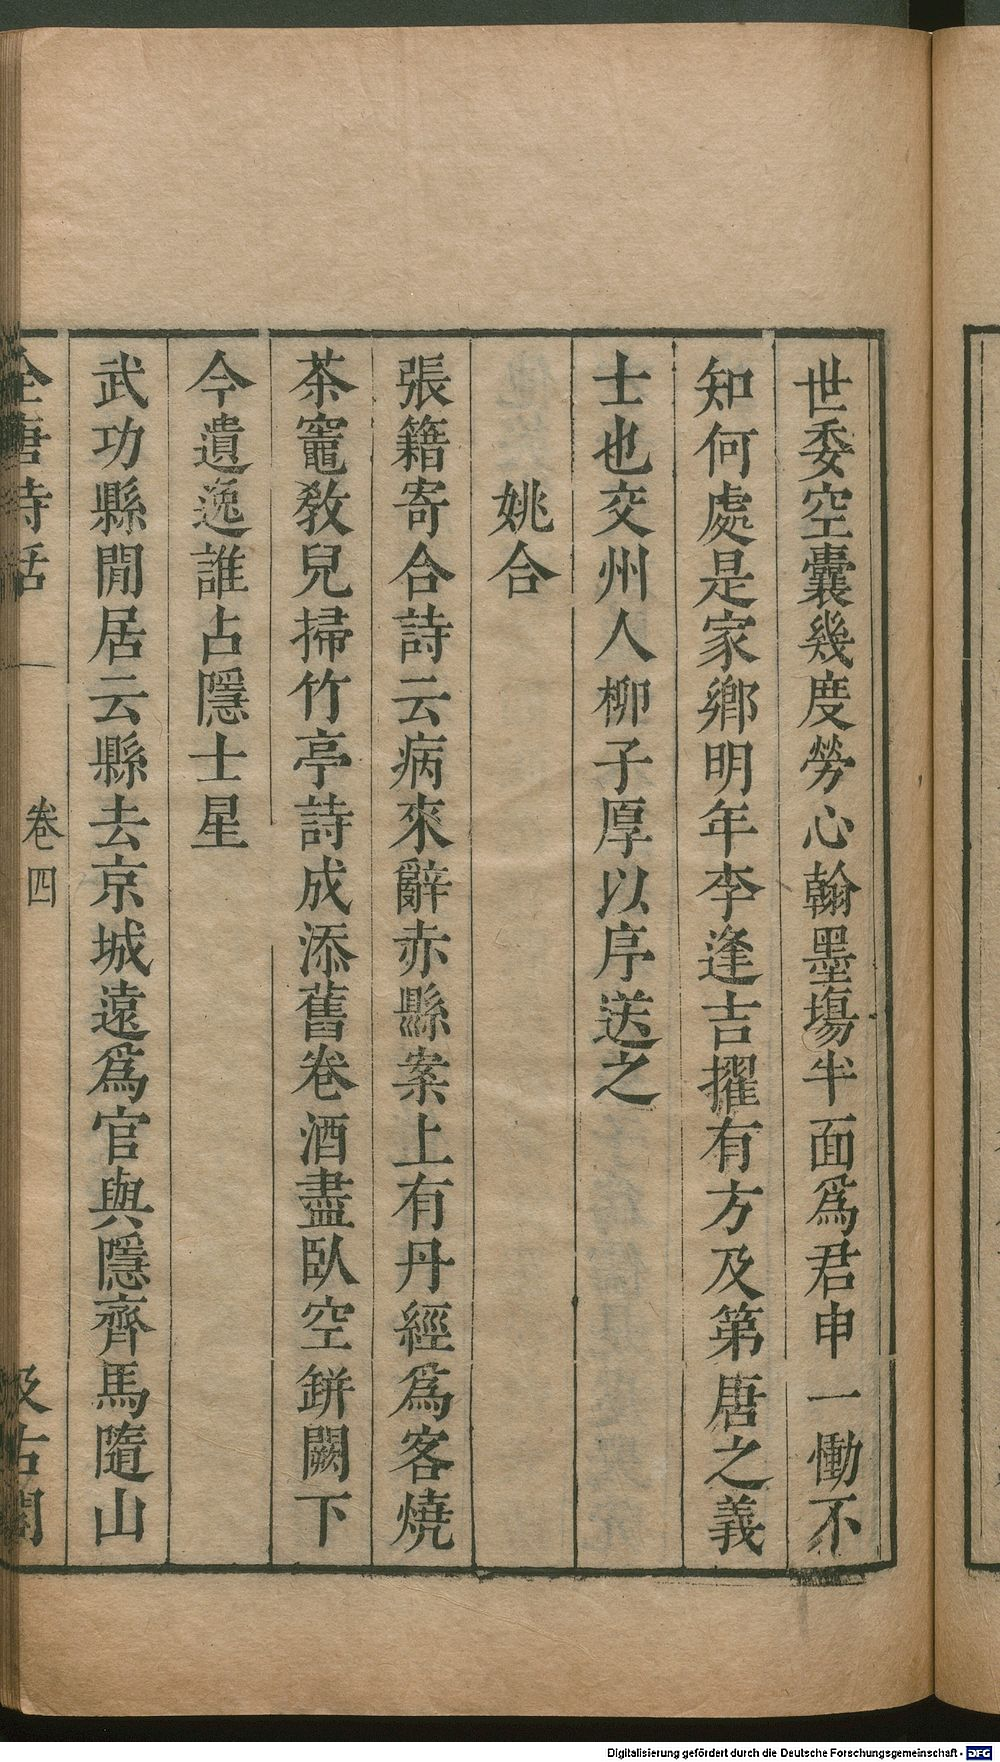 世委空囊幾度勞心翰墨場半面爲君申一慟不
知何處是家鄉明年李逢吉擢有方及第唐之義
士也交州人柳子厚以序送之
姚合
張籍寄合詩云病來辭赤縣案上有丹經爲客燒
茶竈敎兒掃竹亭詩成添舊卷酒盡臥空缾闕下
今遺逸誰占隱士星
武功縣閒居云縣去京城遠爲官與隱齊馬隨山
全唐詩話 卷四 汲古閣
Digitalisierung gefördert durch die Deutsche Forschungsgemeinschaft - DFG